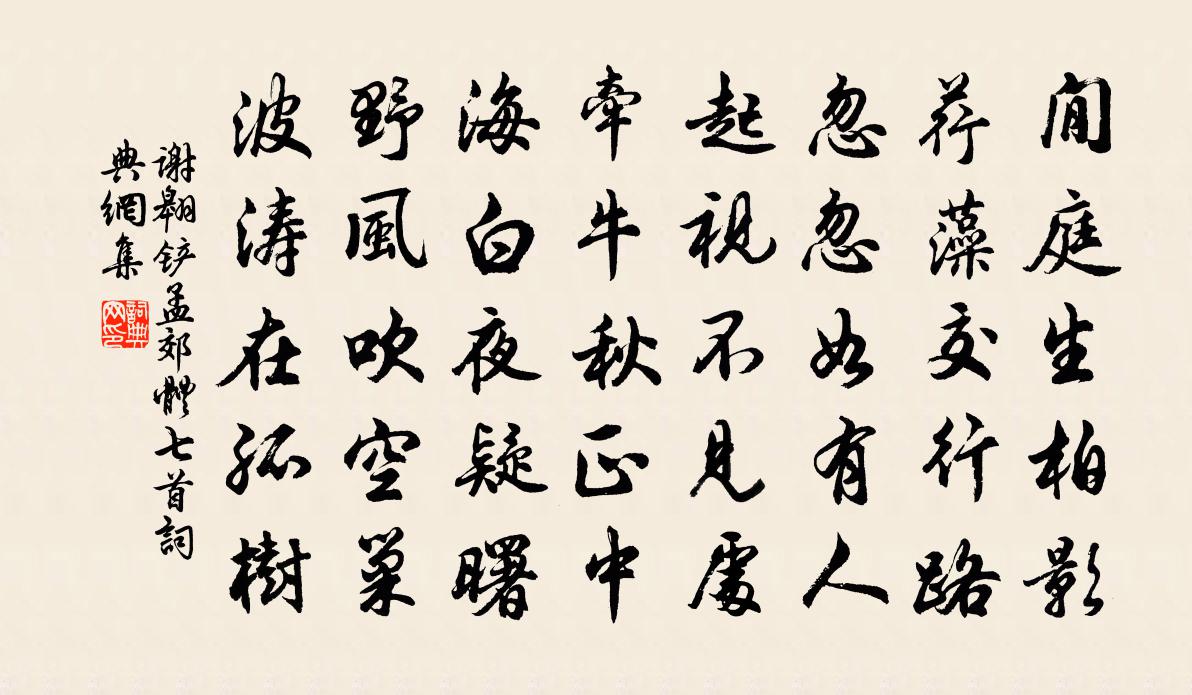 閒庭生柏影
荇藻交行路
忽忽如有人
起視不見處
牽牛秋正中
海白夜疑曙
野風吹空巢
波濤在孤樹
謝翱铲孟郊體七首詞
典網集
詞典网印